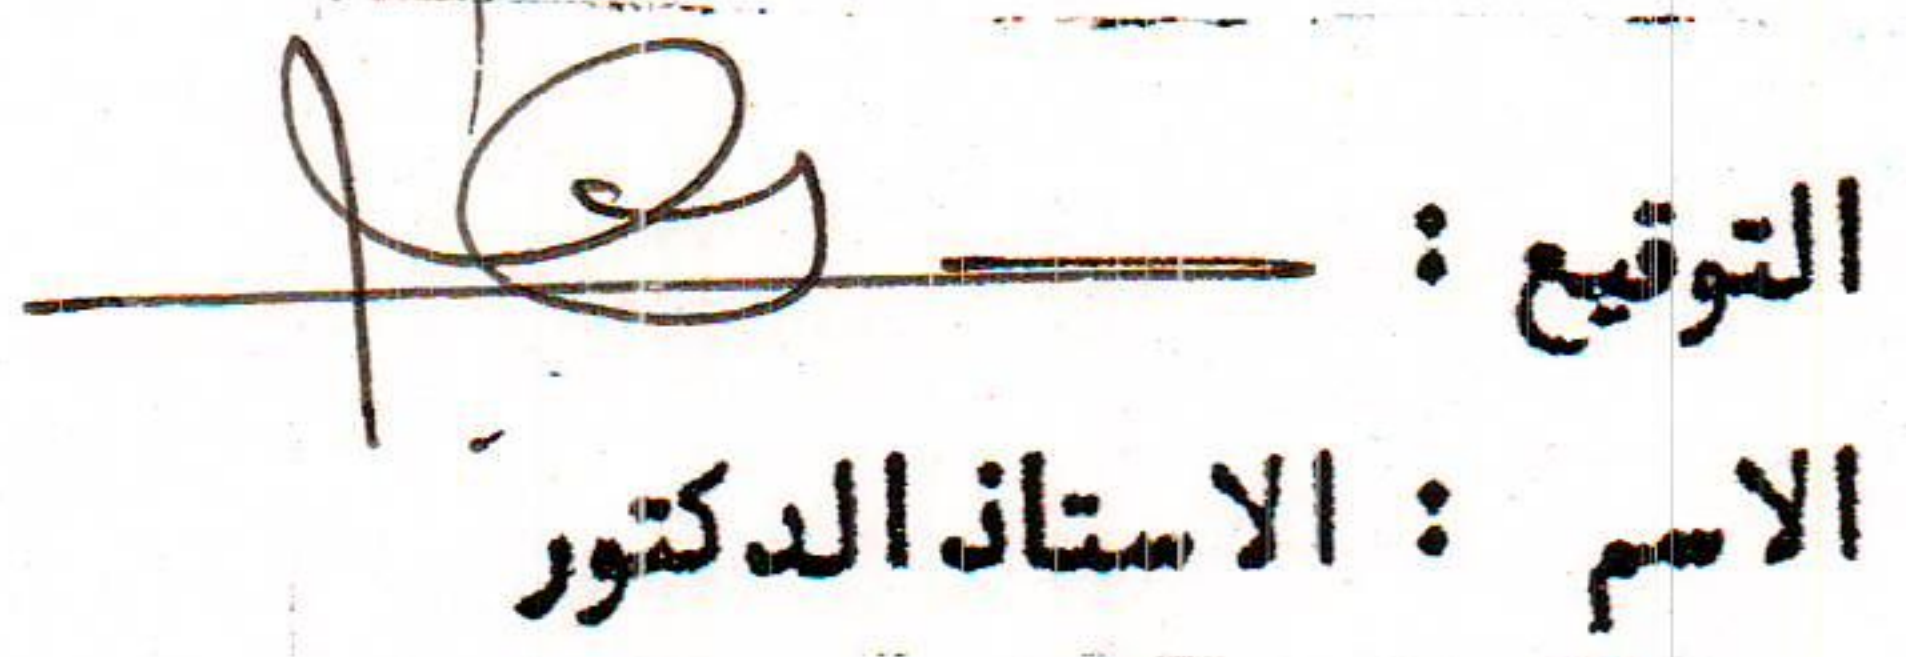 التوقيع :
الاسم : الاستاذ الدكتور